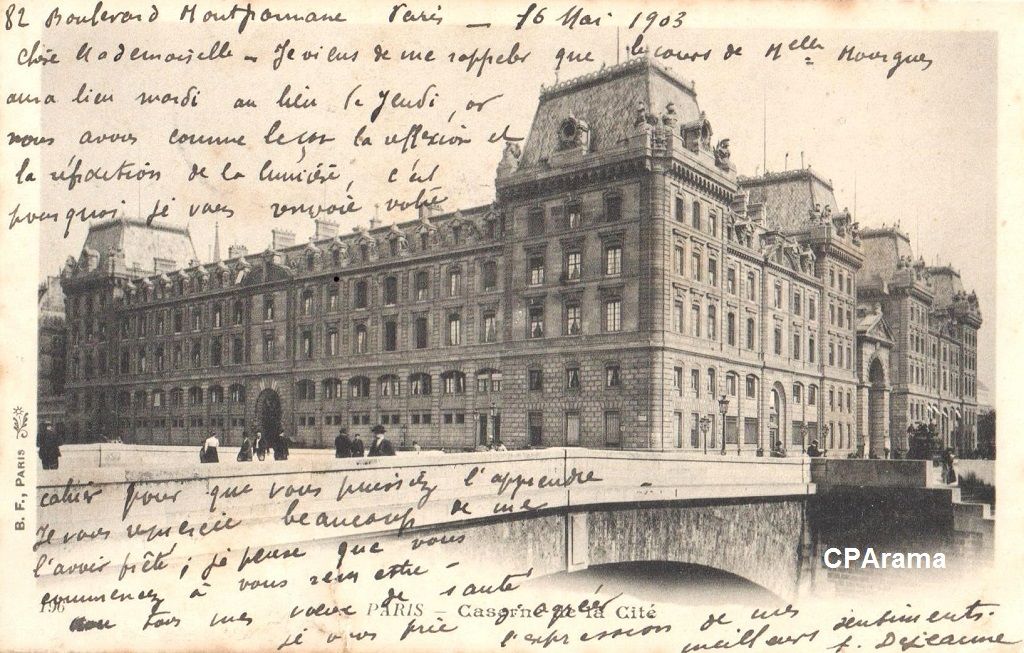 82 Boulevard Montparnasse Paris — 16 Mai 1903
Chère Mademoiselle — Je viens de me rappeler que le cours de Melle Mourgues
aura lieu mardi au lieu de Jeudi, or
nous avons comme leçon la réflexion et
la réfraction de la lumière, c'est
pourquoi je vous renvoie votre
cahier pour que vous puissiez l'apprendre
Je vous remercie beaucoup de me
l'avoir prêté ; je pense que vous
commencez à vous remettre —
tous mes vœux de santé
je vous prie d'agréer
l'expression de mes
meilleurs sentiments.
J. Dejeanne
196 PARIS — Caserne de la Cité
B. F., PARIS
CPArama